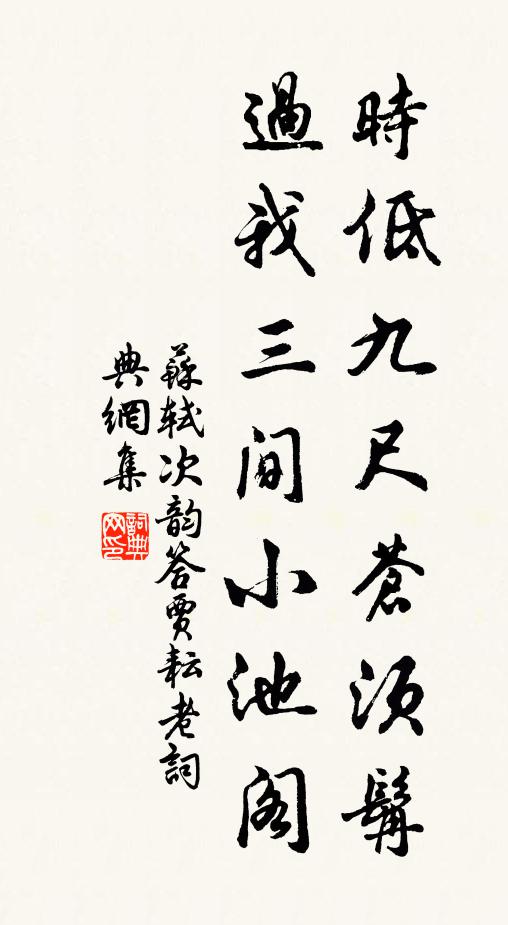 時低九尺蒼須髯
過我三間小池閣
蘇軾次韵答賈耘老詞
典網集
詞典
网印